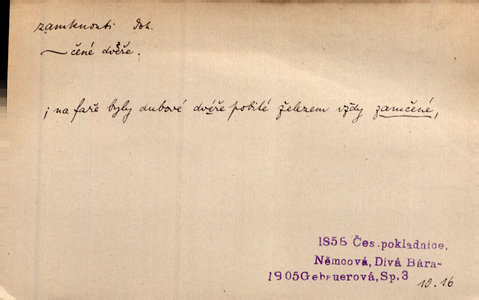 zamknouti Dok.
~čené dvéře.
; na faře byly dubové dvéře pobité železem vždy zamčené,
1856 Čes.pokladnice.
Němcová, Divá Bára-
1905 Gebauerová, Sp.3
19.16